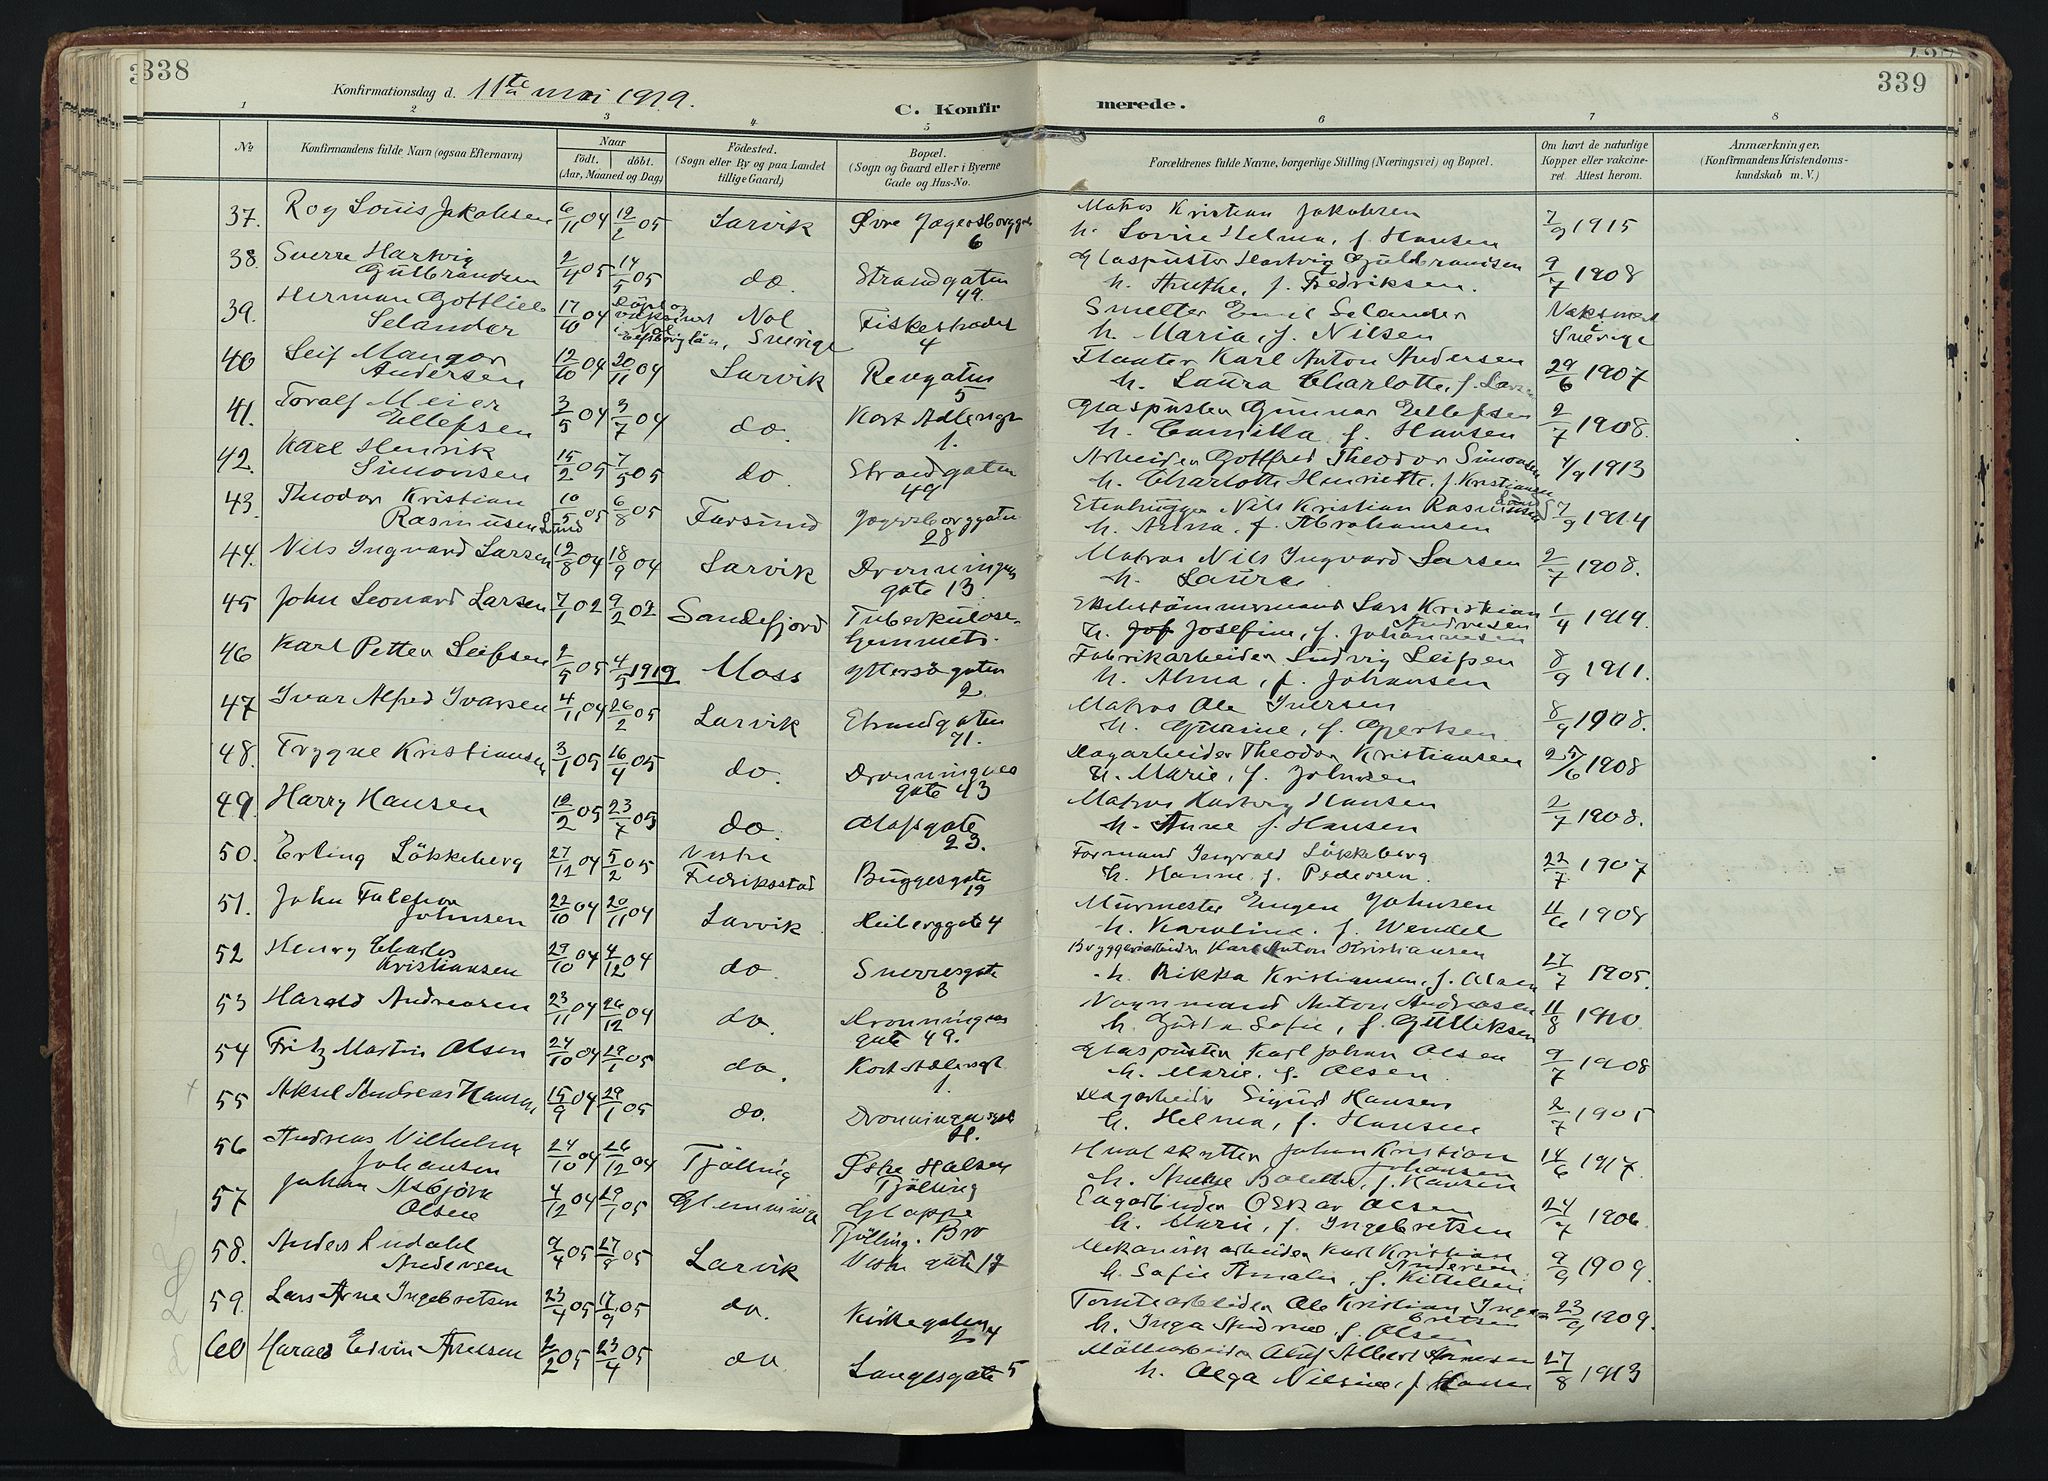 338
Konfirmationsdag d. 11te mai 1919.
C. Konfirmerede.
339
1 2 3 4 5 6 7 8
No.
Konfirmandens fulde Navn (ogsaa Efternavn)
Naar
født. døbt.
(Aar, Maaned og Dag)
Födested.
(Sogn eller By og paa Landet tillige Gaard)
Bopæl.
(Sogn og Gaard eller i Byerne Gade og Hus-No.
Forældrenes fulde Navne, borgerlige Stilling (Næringsvei) og Bopæl.
Om havt de naturlige Kopper eller vakcineret. Attest herom.
Anmærkninger.
(Konfirmandens Kristendomskundskab m. V.)
37. Roy Louis Jakobsen 6/11 04 12/2 05 Larvik Øvre Jegersborggate 6 Matros Kristian Jakobsen h. Lovise Helma, f. Hansen 7/9 1915
38. Sverre Hartvig Gulbrandsen 2/4 05 14/5 05 do. Strandgaten 49. Glaspuster Hartvig Gulbrandsen h. Anethe, f. Fredriksen. 9/7 1908
39. Herman Gottlieb Selander 17/10 04 Døpt og vaksinert i Nol Elfsborg län, Nol Sverige Fiskestrædet 4 Smelter Emil Selander h. Maria, f. Nilsen Vaksinert Sverige
40 Leif Mangor Andersen 12/10 04 20/11 04 Larvik Revegaten 5 Flaater Karl Anton Andersen h. Laura Charlotte, f. Larsen 29/6 1907
41. Toralf Meier Ellefsen 3/5 04 3/7 04 do. Kort Adlersgt 1. Glaspusten Gunnar Ellefsen h. Camilla f. Hansen 2/7 1908.
42. Karl Henrik Simonsen 15/2 05 7/5 05 do. Strandgaten 49 Arbeider Gottfred Theodor Simonsen h. Charlotte Henriette, f. Kristiansen 4/9 1913
43. Theodor Kristian Rasmusen Lund 10/5 05 6/8 05 Farsund Jegersborggaten 28 Stenhugger Nils Kristian Rasmussen Lund h. Anna, f. Abrahamsen 7/9 1914
44. Nils Ingvard Larsen 12/8 04 18/9 04 Larvik Dronningens gate 13. Matros Nils Ingvard Larsen h. Laura 2/7 1908.
45 John Leonard Larsen 7/1 02 9/2 02 Sandefjord Tuberkulosehjemmet. Skibstømmermand Lars Kristian Andresen h. Jof Josefine, f. Johannesen 1/4 1919.
46 Karl Petter Leifsen 2/5 05 4/5 1919 Moss Yttersøgaten 2. Fabrikarbeider Ludvig Leifsen h. Alma, f. Johansen 8/9 1911.
47 Ivar Alfred Ivarsen 4/11 04 26/2 05 Larvik Strandgaten 71. Matros Ole Iversen h. f. Gjertsen 8/9 1908.
48. Trygve Kristiansen 3/1 05 16/4 05 do. Dronningens gate 43 Dagarbeider Theodor Kristiansen h. Marie, f. Johnsen 25/6 1908
49 Harry Hansen 12/2 05 23/7 05 do. Olafsgate 23. Matros Hartvig Hansen h. Anne f. Hansen 2/7 1908.
50. Erling Løkkeberg 27/12 04 5/2 05 Vestre Fredriksstad Buggesgate 19 Formand Ingvald Løkkeberg h. Hanne f. Pedersen. 22/7 1907
51. John Johnsen 22/10 04 20/11 04 Larvik Heiberggate 4 Murmester Eugen Johnsen h. Karoline, f. Wendel 11/6 1908
52 Henry Charles Kristiansen 29/10 04 4/12 04 do. Sverresgate 3 Bryggeriarbeider Karl Anton Kristiansen h. Rikka Kristiansen, f. Olsen 27/7 1905.
53 Harald Andreasen 23/11 04 26/12 04 do. Dronningens gate 49. Vognmand Anton Andreasen h. Gusta Sofie, f. Gulliksen 11/8 1910.
54 Fritz Martin Olsen 24/10 04 29/1 05 do. Kort Adlersgt 1. Glaspusten Karl Johan Olsen h. Marie, f. Olsen. 9/7 1908
55 Aksel Andreas Hansen 15/9 04 29/1 05 do. Dronningensgt Dagarbeider Sigurd Hansen h. Helma, f. Hansen 2/7 1905
56 Andreas Vilhelm Johansen 24/10 04 26/12 04 Tjølling Østre Halsen Tjølling Hvalskytter Johan Kristian Johansen h. f. Hansen 14/6 1917.
57 Johan Asbjørn Olsen 4/12 04 29/1 05 Glemminge Gloppe Tjølling. Bro Sagarbeider Oskar Olsen h. Marie, f. Ingebretsen 24/7 1906.
58. Anders Andersen 9/4 05 27/8 05 Larvik Vestre gate 17 Mekanisk arbeider Karl Kristian Andersen h. Sofie Amalie, f. Kittelsen 9/9 1909.
59. Lars Arne Ingebretsen 23/4 05 17/9 05 do. Kirkegaten 24 Tomtearbeider Ole Kristian Ingebretsen h. Inga Andrine f. Olsen 23/9 1909.
60 Harald Edvin Arnesen 2/2 05 23/4 05 do. Langesgate 5 Møllearbeider Oluf Albert Arnesen h. Olga Nilsine, f. Hansen 27/8 1913